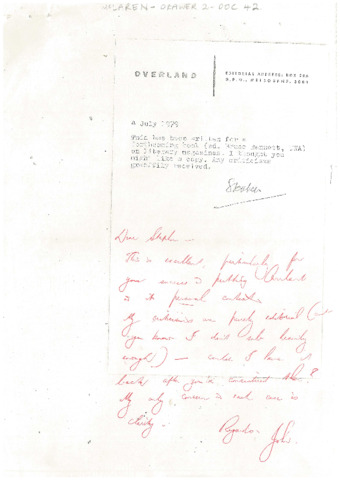 McLAREN - DRAWER 2 - DOC 42
OVERLAND
EDITORIAL ADDRESS: BOX
G.P.O., MELBOURNE, 3001
4 July 1979
This has been written for a
forthcoming book (ed. Bruce Bennett, UWA)
on literary magazines. I thought you
might like a copy. Any criticisms
gratefully received.
Stephen
Dear Stephen
This is excellent, particularly for
your success in putting Overland
in its personal
My are purely editorial (
you know I don't
enough!) — could I have it
back after you've
My only concern in each case is
clarity.
Regards
John